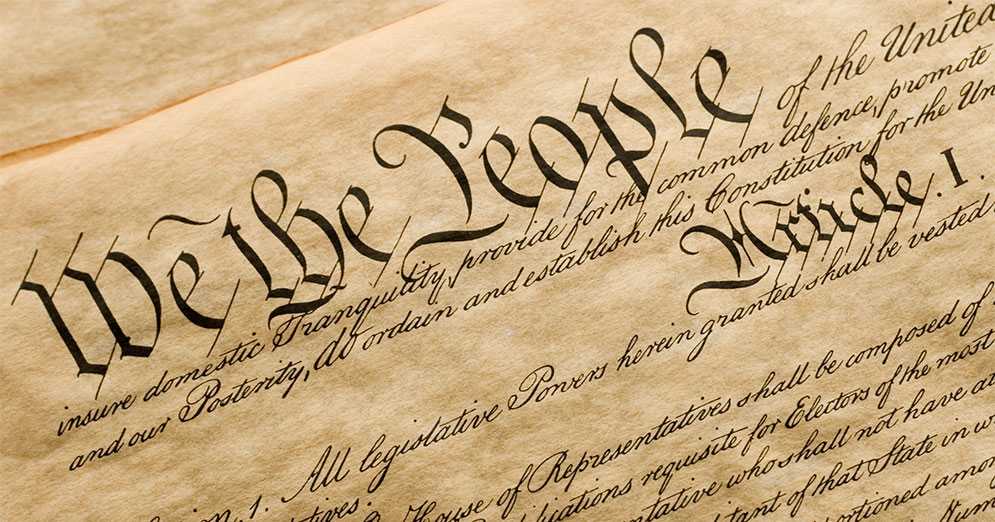 We the People of the United
insure domestic Tranquility, provide for the common defence, promote
and our Posterity, do ordain and establish this Constitution for the Un
Article. I.
n. 1. All legislative Powers herein granted shall be vested
tives.
House of Representatives shall be composed of
ications requisite for Electors of the most
ntative who shall not have at
tant of that State in w
rtioned amon
Num